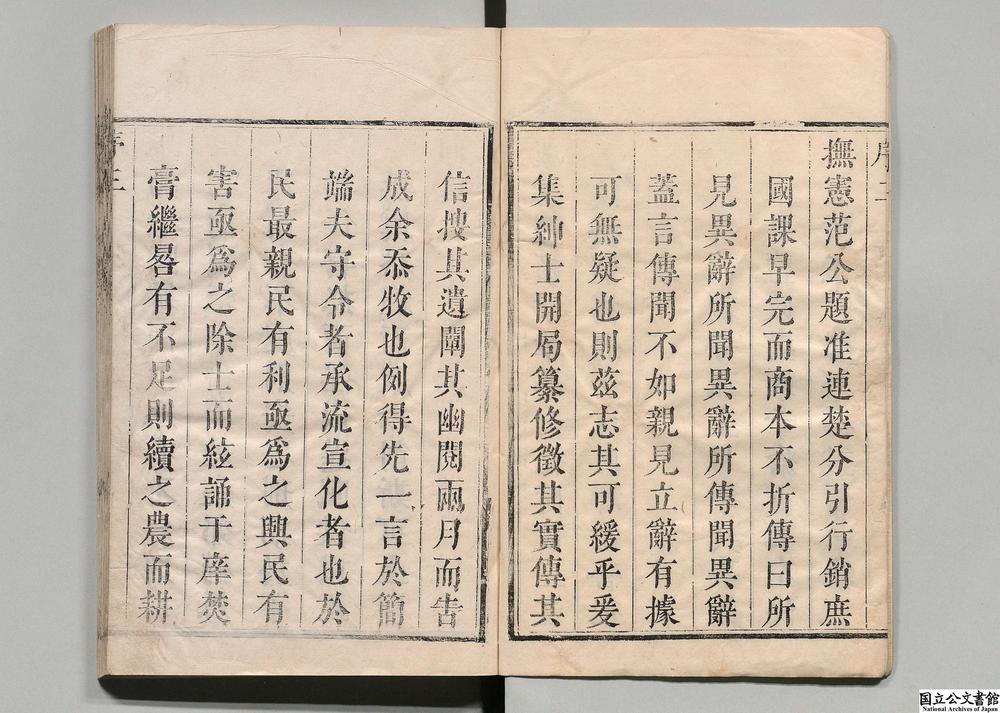 序二
撫憲范公題准連楚分引行銷庶
國課早完而商本不折傳曰所
見異辭所聞異辭所傳聞異辭
蓋言傳聞不如親見立辭有據
可無疑也則茲志其可緩乎爰
集紳士開局纂修徵其實傳其
信搜其遺闡其幽閱兩月而告
成余忝牧也例得先一言於簡
端夫守令者承流宣化者也於
民最親民有利亟為之興民有
害亟為之除士而絃誦于庠焚
膏繼晷有不足則續之農而耕
序三
国立公文書館
National Archives of Japan